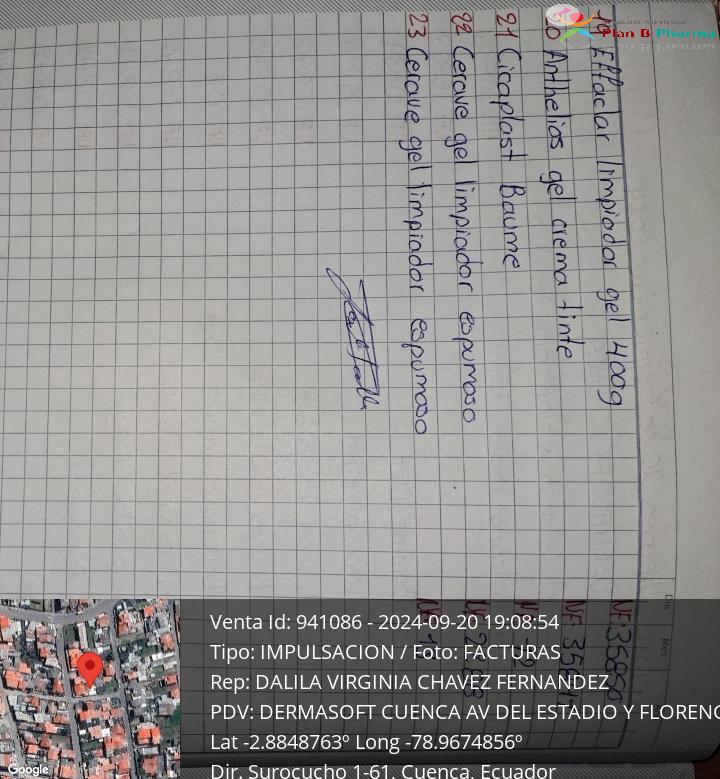 19 Effaclar limpiador gel 400g
20 Anthelios gel crema tinte
21 Cicaplast Baume
22 Cerave gel limpiador espumoso
23 Cerave gel limpiador espumoso
Plan B Pharma
Dia
Mes
Venta Id: 941086 - 2024-09-20 19:08:54
Tipo: IMPULSACION / Foto: FACTURAS
Rep: DALILA VIRGINIA CHAVEZ FERNANDEZ
PDV: DERMASOFT CUENCA AV DEL ESTADIO Y FLORENC
Lat -2.8848763º Long -78.9674856º
Dir. Surocucho 1-61, Cuenca, Ecuador
Google